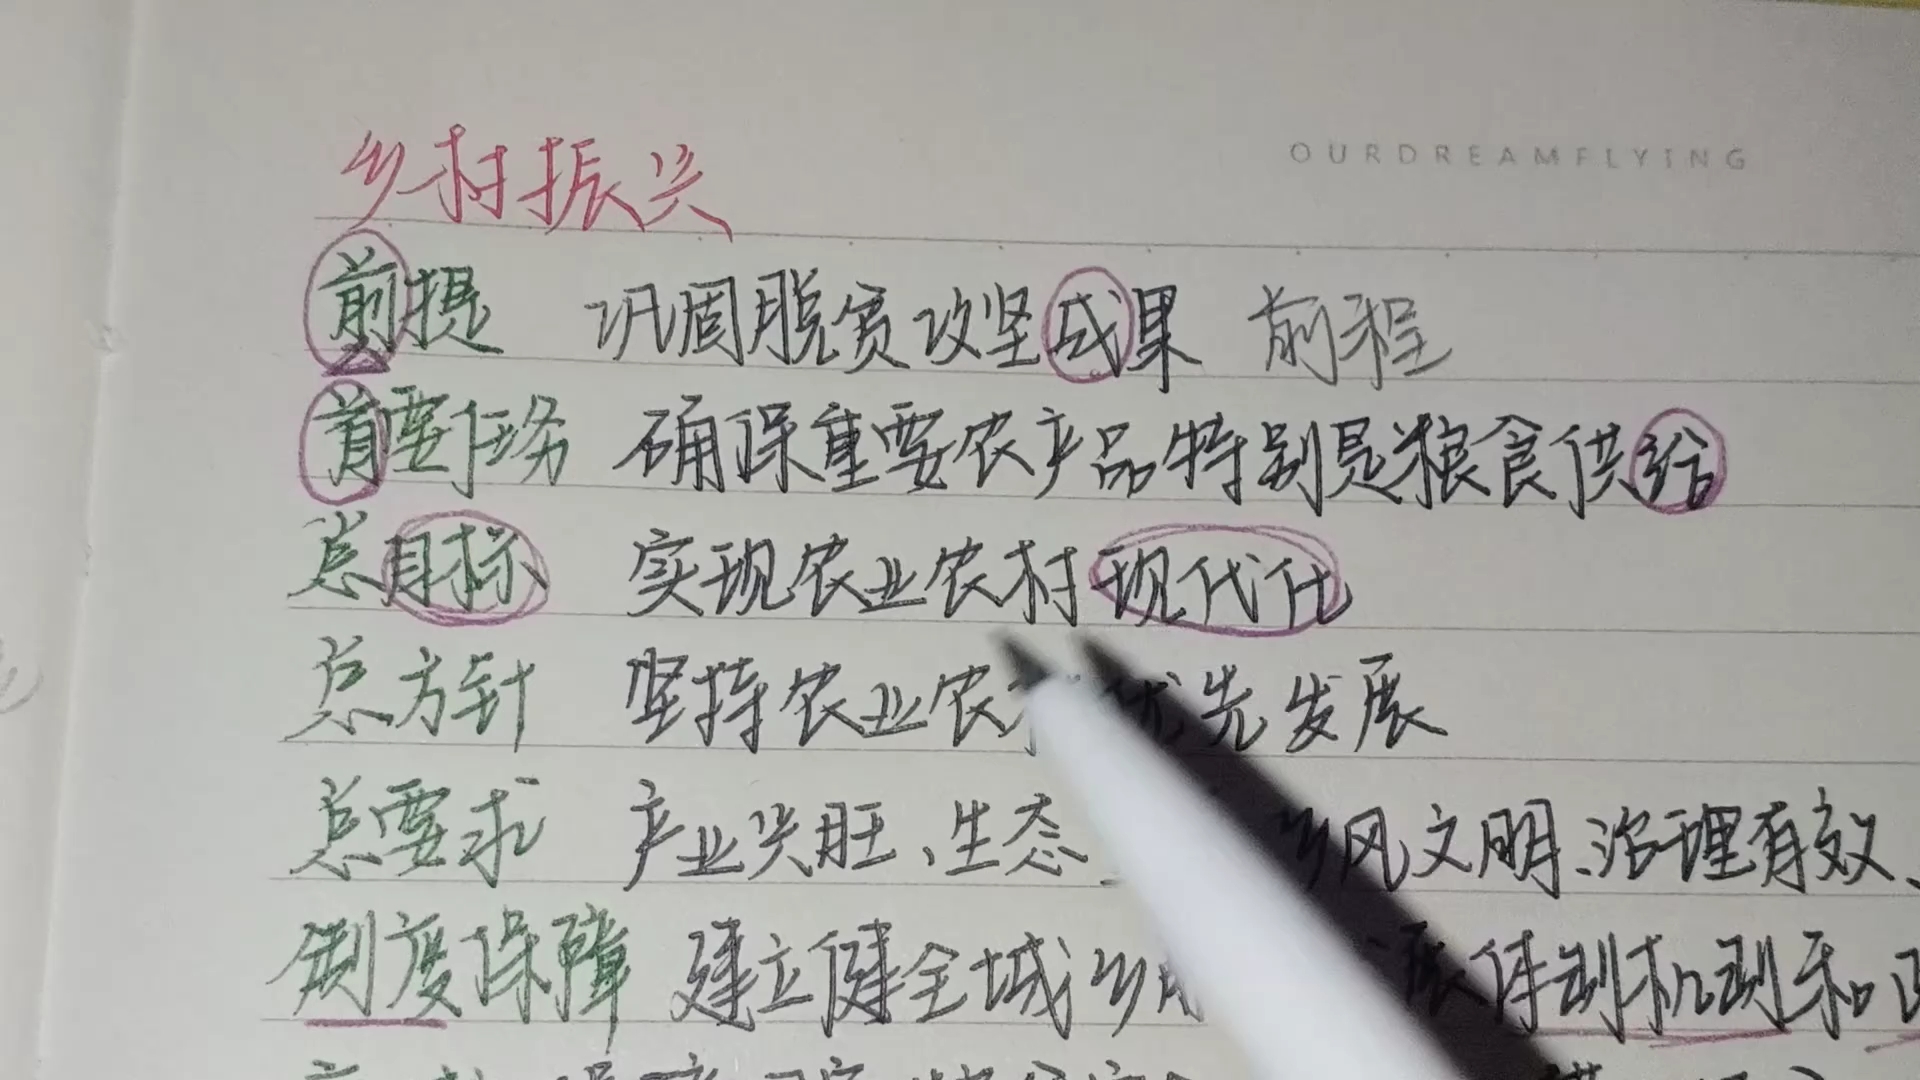 OURDREAMFLYING
乡村振兴
前提 巩固脱贫攻坚成果 前程
首要任务 确保重要农产品特别是粮食供给
总目标 实现农业农村现代化
总方针 坚持农业农村优先发展
总要求 产业兴旺、生态 乡风文明、治理有效、
制度保障 建立健全城乡 展体制机制和